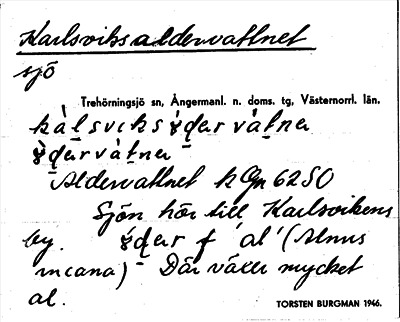 Karlsviksaldervattnet
sjö
Trehörningsjö sn, Ångermanl. n. doms. tg, Västernorrl. län.
Aldervattnet k Gn 62 SO
Sjön hör till Karlsvikens
by. f al (Alnus
incana) Där växer mycket
al.
TORSTEN BURGMAN 1946.